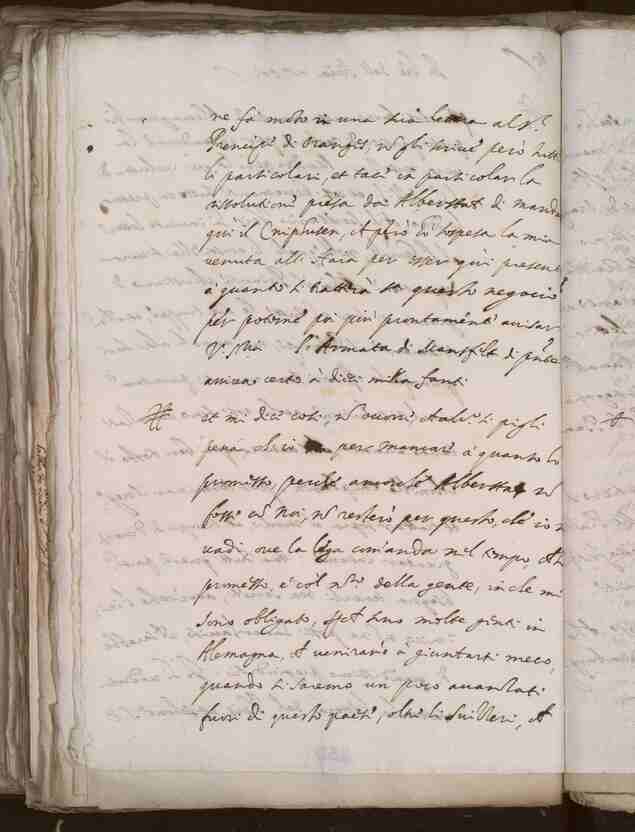 ne fà moto in una sua lettera al Sr.
Prencipe di Oranges, nè gli scrive però tutti
li particolari, et tace in particolar la
risolutione presa da Alberstat di mandar
quì il Cniphusen,
venuta all' Haia per esser quì presente
à quanto si tratterà questo negocio
per poterne poi più prontamente avisar
V. Srà l'Armata di Mansfelt di pnte
arriva certo à dieci mila fanti
et mi dice così, nè occorre si pigli
pena, ch' io per mancare à quanto ho
promesso, perche Alberstat nè
fosse con noi, nè resterò per questo, ch' io n
vadi, ove la lega comanda nel tempo,
promesso, e col no. della gente, in che mi
sono obligato, molte genti in
Alemagna, et veniranno à giuntarsi meco,
quando si saremo un poco avanzati
fuori di questo paese, oltre li Suizzeri, et